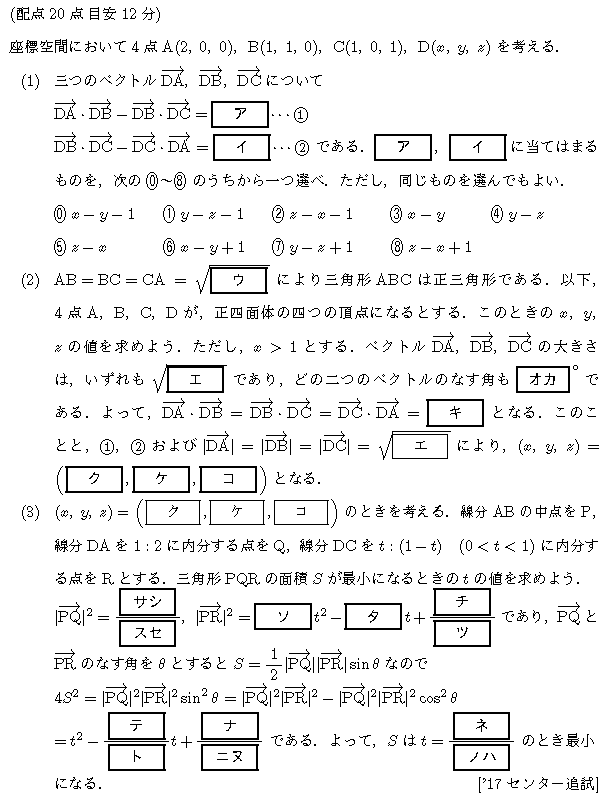 (配点20点目安12分)
座標空間において4点A(2, 0, 0), B(1, 1, 0), C(1, 0, 1), D(x, y, z)を考える.
(1) 三つのベクトル$\overrightarrow{DA}$, $\overrightarrow{DB}$, $\overrightarrow{DC}$について
$\overrightarrow{DA}$・$\overrightarrow{DB}$－$\overrightarrow{DB}$・$\overrightarrow{DC}$＝[ア]…①
$\overrightarrow{DB}$・$\overrightarrow{DC}$－$\overrightarrow{DC}$・$\overrightarrow{DA}$＝[イ]…②である. [ア], [イ]に当てはまる
ものを, 次の⓪～⑧のうちから一つ選べ. ただし, 同じものを選んでもよい.
⓪ x－y－1 ① y－z－1 ② z－x－1 ③ x－y ④ y－z
⑤ z－x ⑥ x－y＋1 ⑦ y－z＋1 ⑧ z－x＋1
(2) AB＝BC＝CA ＝ √[ウ] により三角形ABCは正三角形である. 以下,
4点A, B, C, Dが, 正四面体の四つの頂点になるとする. このときのx, y,
zの値を求めよう. ただし, x > 1とする. ベクトル$\overrightarrow{DA}$, $\overrightarrow{DB}$, $\overrightarrow{DC}$の大きさ
は, いずれも √[エ] であり, どの二つのベクトルのなす角も [オカ]° で
ある. よって, $\overrightarrow{DA}$・$\overrightarrow{DB}$ ＝ $\overrightarrow{DB}$・$\overrightarrow{DC}$ ＝ $\overrightarrow{DC}$・$\overrightarrow{DA}$ ＝ [キ] となる. このこ
とと, ①, ②および|$\overrightarrow{DA}$| ＝ |$\overrightarrow{DB}$| ＝ |$\overrightarrow{DC}$| ＝ √[エ] により, (x, y, z) ＝
([ク], [ケ], [コ])となる.
(3) (x, y, z)＝([ク], [ケ], [コ])のときを考える. 線分ABの中点をP,
線分DAを1 : 2に内分する点をQ, 線分DCをt : (1－t) (0 < t < 1)に内分す
る点をRとする. 三角形PQRの面積Sが最小になるときのtの値を求めよう.
|$\overrightarrow{PQ}$|²＝[サシ]/[スセ], |$\overrightarrow{PR}$|²＝[ソ]t²－[タ]t＋[チ]/[ツ]であり, $\overrightarrow{PQ}$と
$\overrightarrow{PR}$のなす角をθとするとS＝1/2|$\overrightarrow{PQ}$||$\overrightarrow{PR}$|sinθなので
4S²＝|$\overrightarrow{PQ}$|²|$\overrightarrow{PR}$|²sin²θ＝|$\overrightarrow{PQ}$|²|$\overrightarrow{PR}$|²－|$\overrightarrow{PQ}$|²|$\overrightarrow{PR}$|²cos²θ
＝t²－[テ]/[ト]t＋[ナ]/[ニヌ]である. よって, Sはt＝[ネ]/[ノハ]のとき最小
になる. ['17センター追試]